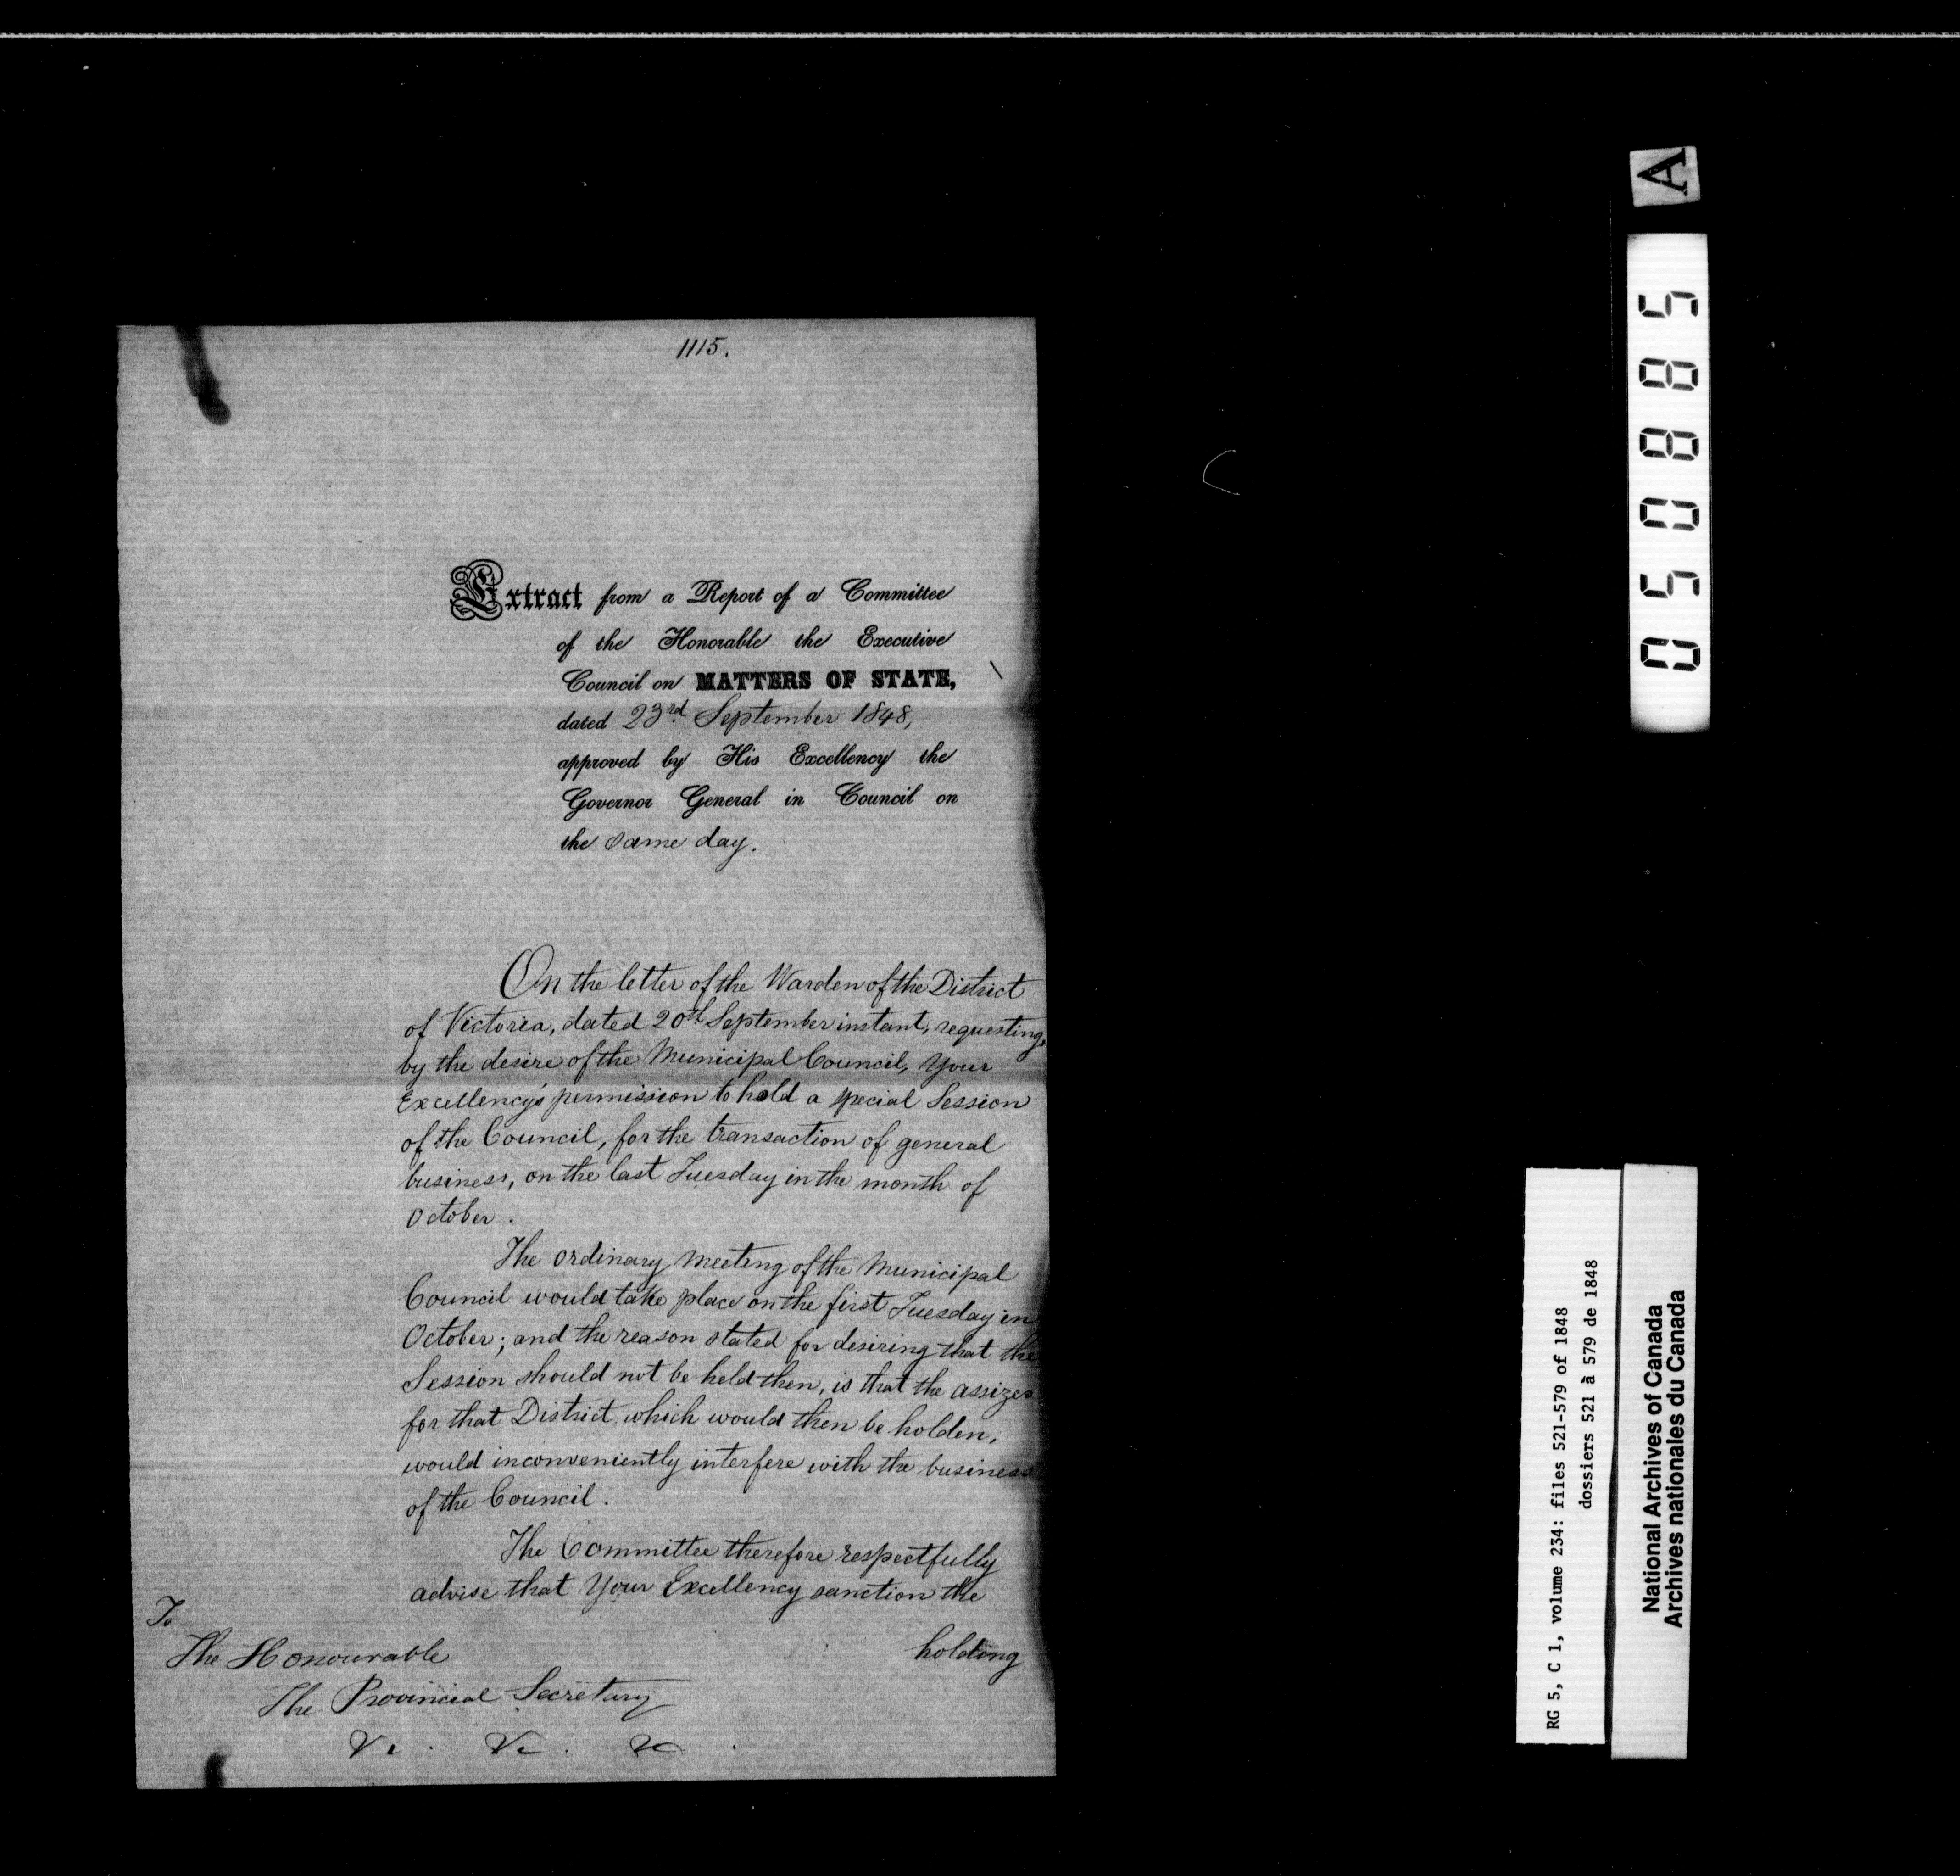 1115.
Extract from a Report of a Committee
of the Honorable the Executive
Council on MATTERS OF STATE,
dated 23rd September 1848,
approved by His Excellency the
Governor General in Council on
the same day.
On the letter of the Warden of the District
of Victoria, dated 20th September instant, requesting,
by the desire of the Municipal Council, Your
Excellency's permission to hold a special Session
of the Council, for the transaction of general
business, on the last Tuesday in the month of
October.
The ordinary meeting of the Municipal
Council would take place on the first Tuesday in
October; and the reason stated for desiring that the
Session should not be held then, is that the assizes
for that District, which would then be holden,
would inconveniently interfere with the business
of the Council.
The Committee therefore respectfully
advise that Your Excellency sanction the
holding
To
The Honourable
The Provincial Secretary
&c. &c. &c.
A
050885
RG 5, C 1, volume 234: files 521-579 of 1848
dossiers 521 à 579 de 1848
National Archives of Canada
Archives nationales du Canada